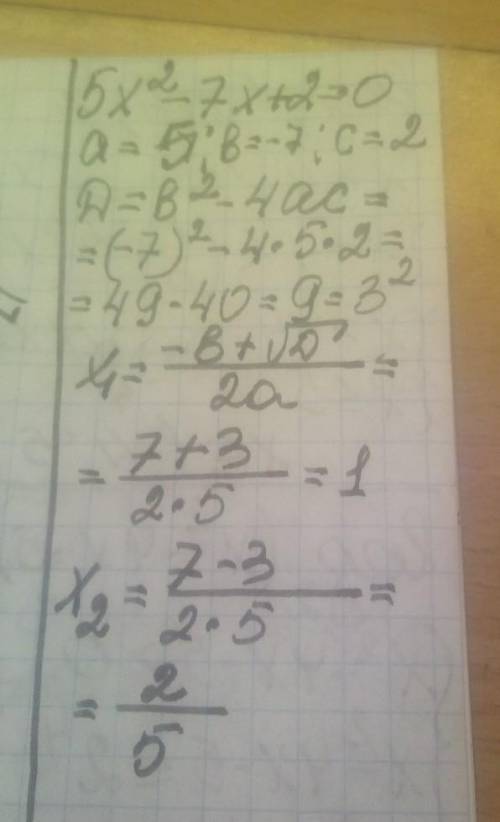 5x² - 7x + 2 = 0
a = 5; в = -7; c = 2
Д = в² - 4ac =
= (-7)² - 4·5·2 =
= 49 - 40 = 9 = 3²
x₁ = (-в + √Д) / 2a =
= (7 + 3) / (2·5) = 1
x₂ = (7 - 3) / (2·5) =
= 2/5